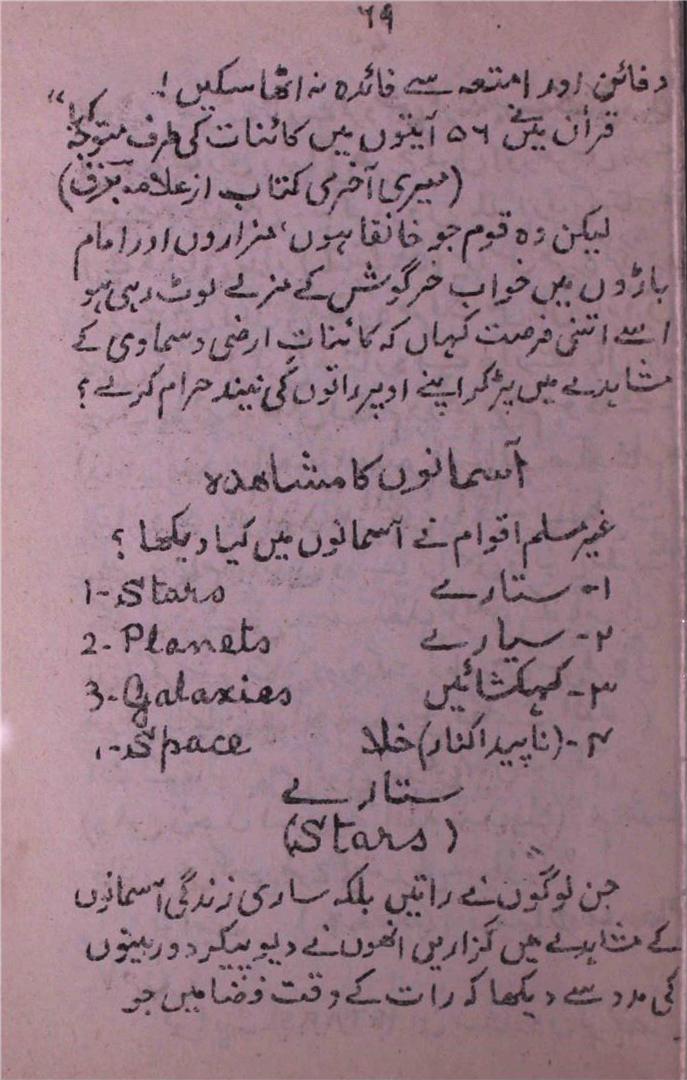 ۶۹
دفائن اور امتعہ سے فائدہ نہ اٹھا سکیں!
قرآن میں نے ۵۶ آیتوں میں کائنات کی طرف متوجہ کیا"
(میری آخری کتاب از علامہ برق)
لیکن وہ قوم جو خانقاہوں، مزاروں اور امام
باڑوں میں خواب خرگوش کے مزے لوٹ رہی ہو
اسے اتنی فرصت کہاں کہ کائناتِ ارضی و سماوی کے
مشاہدے میں پڑ کر اپنے اوپر راتوں کی نیند حرام کرلے؟
آسمانوں کا مشاھدہ
غیر مسلم اقوام نے آسمانوں میں کیا دیکھا؟
۱- ستارے 1-Stars
۲- سیارے 2-Planets
۳- کہکشائیں 3-Galaxies
۴- (ناپیدا کنار) خلا -Space
ستارے
(Stars)
جن لوگوں نے راتیں بلکہ ساری زندگی آسمانوں
کے مشاہدے میں گزاریں انھوں نے دیوپیکر دوربینوں
کی مدد سے دیکھا کہ رات کے وقت فضا میں جو